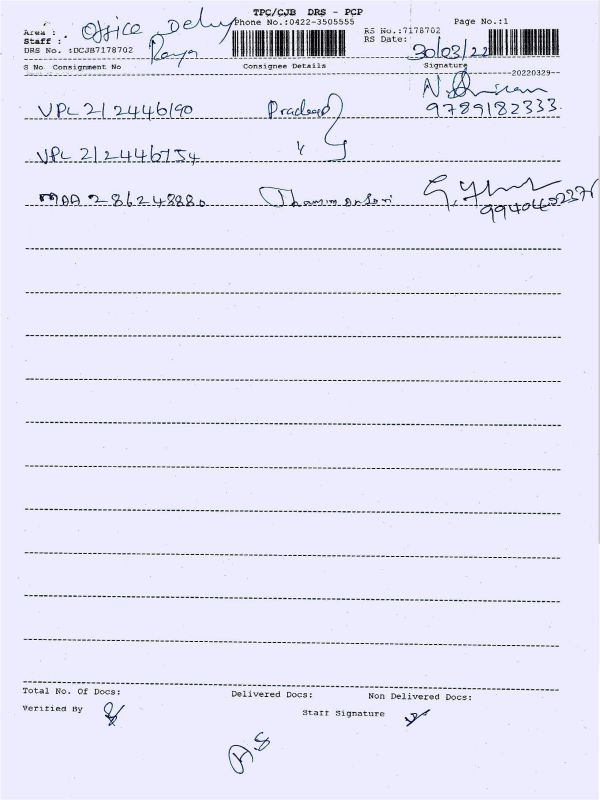 TPC/CJB DRS - PCP
Area : Office Delvy Phone No.:0422-3505555 Page No.:1
Staff : Ramya RS No.:7178702
DRS No. :DCJB7178702 RS Date: 30/03/22
S No Consignment No Consignee Details Signature
20220329
VPL 2/2446190 Pradeep 9789182333
VPL 2/2446754 "
MAA 286248880
Total No. Of Docs: Delivered Docs: Non Delivered Docs:
Verified By Staff Signature